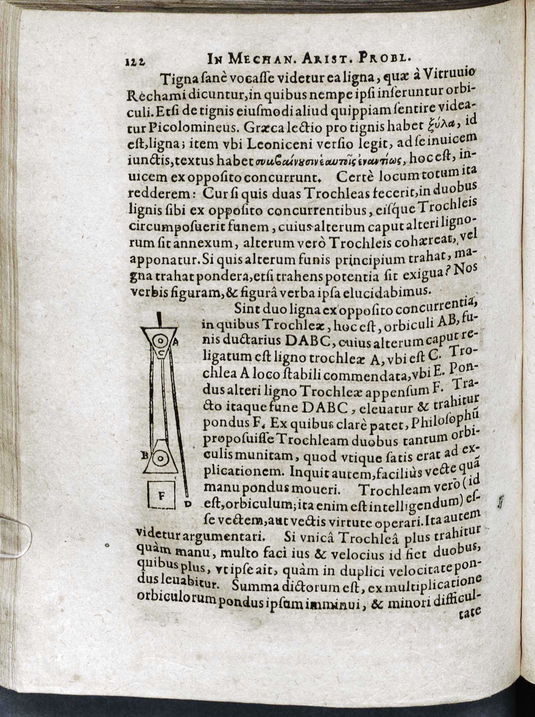 122 IN MECHAN. ARIST. PROBL.
Tigna sanè vocasse videtur ea ligna, quæ à Vitruuio
Rechami dicuntur, in quibus nempe ipsi inseruntur orbi-
culi. Etsi de tignis eiusmodi aliud quippiam sentire videa-
tur Picolomineus. Græca lectio pro tignis habet ξύλα, id
est, ligna; item vbi Leoniceni versio legit, ad se inuicem
iunctis, textus habet συμβαίνουσιν ἑαυτοῖς ἐναντίως, hoc est, in-
uicem ex opposito concurrunt. Certè locum totum ita
redderem: Cur si quis duas Trochleas fecerit, in duobus
lignis sibi ex opposito concurrentibus, eisque Trochleis
circumposuerit funem, cuius alterum caput alteri ligno-
rum sit annexum, alterum verò Trochleis cohæreat, vel
apponatur. Si quis alterum funis principium trahat, ma-
gna trahat pondera, etsi trahens potentia sit exigua? Nos
verbis figuram, & figurâ verba ipsa elucidabimus.
Sint duo ligna ex opposito concurrentia,
in quibus Trochleæ, hoc est, orbiculi AB, fu-
nis ductarius DABC, cuius alterum caput re-
ligatum est ligno trochleæ A, vbi est C. Tro-
chlea A loco stabili commendata, vbi E. Pon-
dus alteri ligno Trochleæ appensum F. Tra-
cto itaque fune DABC, eleuatur & trahitur
pondus F. Ex quibus clarè patet, Philosophũ
proposuisse Trochleam duobus tantum orbi-
culis munitam, quod vtique satis erat ad ex-
plicationem. Inquit autem, faciliùs vecte quã
manu pondus moueri. Trochleam verò (id
est, orbiculum; ita enim est intelligendum) es-
se vectem, aut vectis virtute operari. Ita autem
videtur argumentari. Si vnicâ Trochleâ plus trahitur
quàm manu, multo faci ius & velocius id fiet duobus,
quibus plus, vt ipse ait, quàm in duplici velocitate pon-
dus leuabitur. Summa dictorum est, ex multiplicatione
orbiculorum pondus ipsum imminui, & minori difficul-
tate
E
A
C
B
F
D